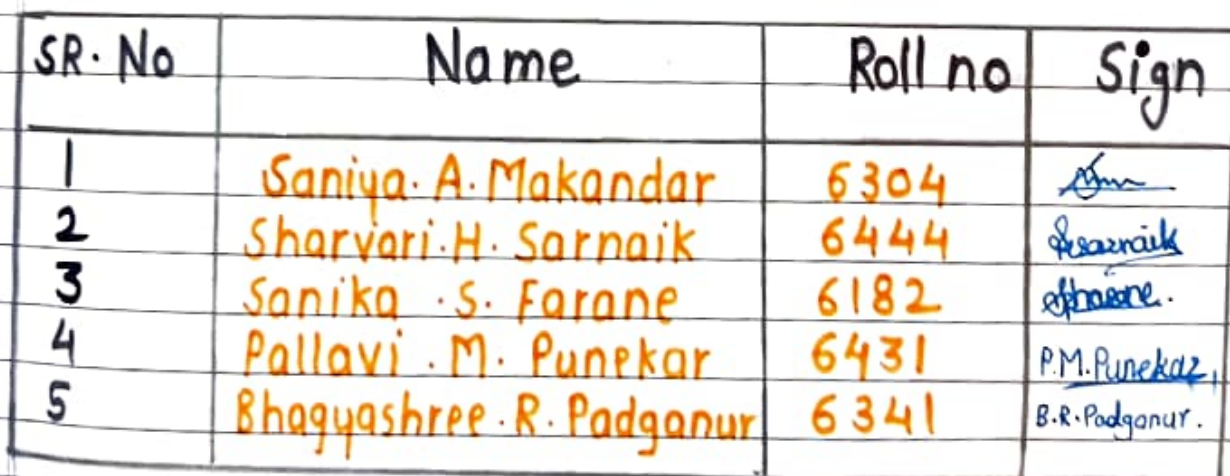 SR. No Name Roll no Sign
1 Saniya. A. Makandar 6304
2 Sharvari.H. Sarnaik 6444
3 Sanika .S. Farane 6182
4 Pallavi .M. Punekar 6431 P.M.Punekar
5 Bhagyashree.R. Padganur 6341 B.R.Padganur.